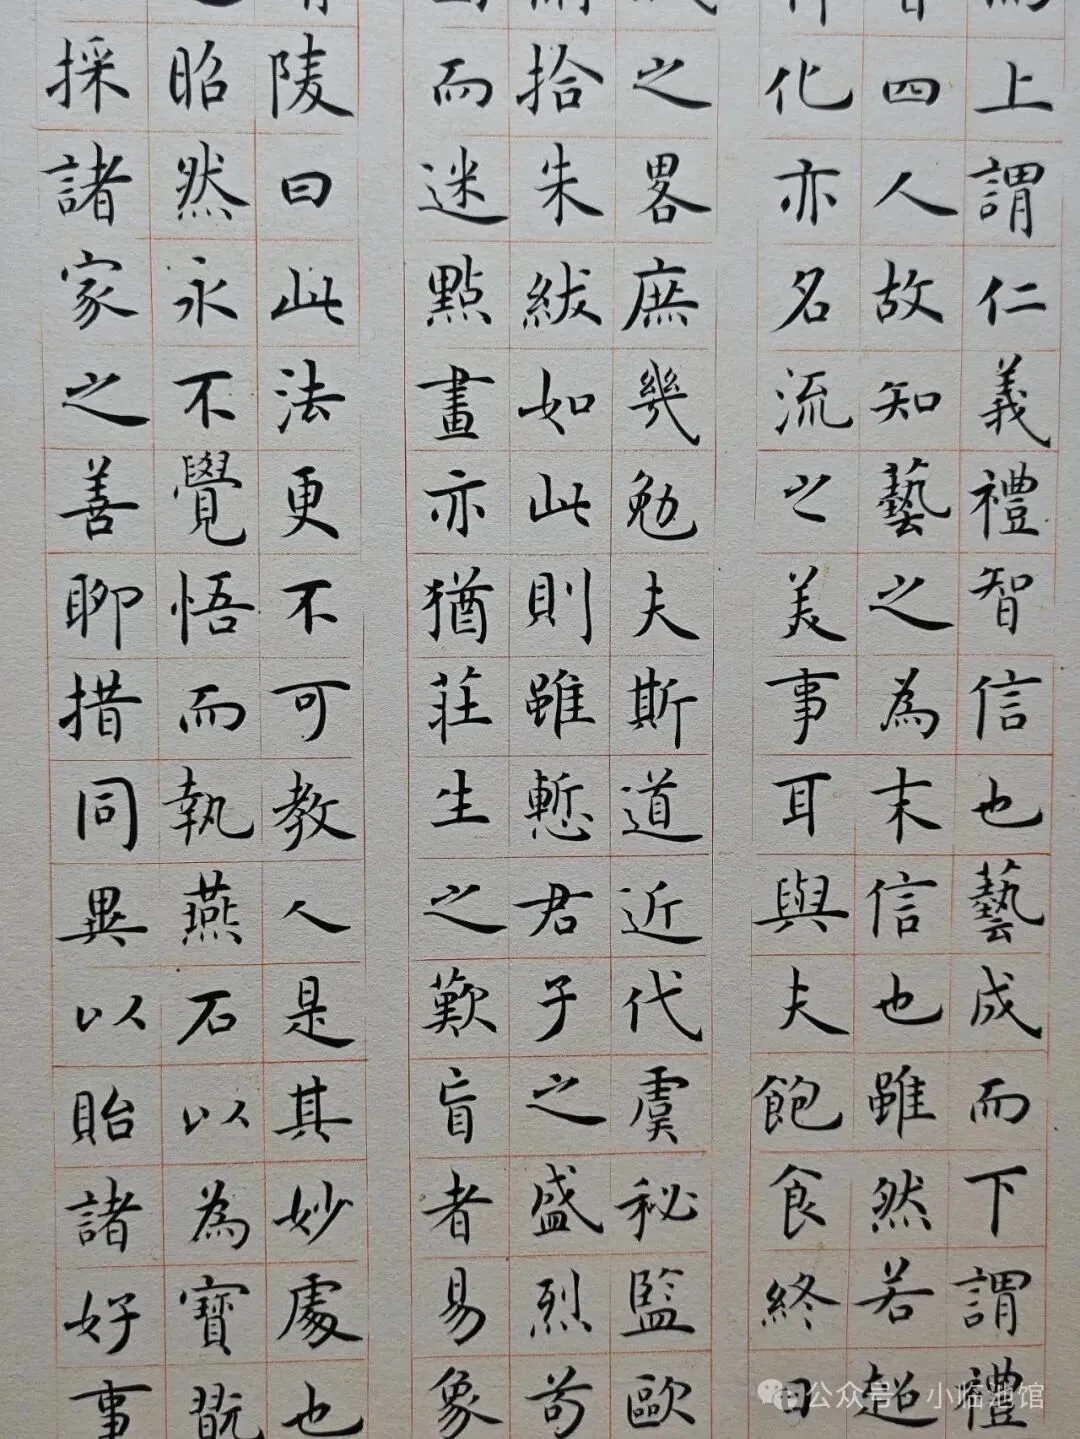 上謂仁義禮智信也藝成而下謂禮
四人故知藝之為末信也雖然若超
化亦名流之美事耳與夫飽食終日
之畧庶幾勉夫斯道近代虞秘監歐
拾朱紱如此則雖慙君子之盛烈苟
而迷點畫亦猶莊生之歎盲者易象
陵曰此法更不可教人是其妙處也
昭然永不覺悟而執燕石以為寶翫
採諸家之善聊措同異以貽諸好事
公众号 小临池馆